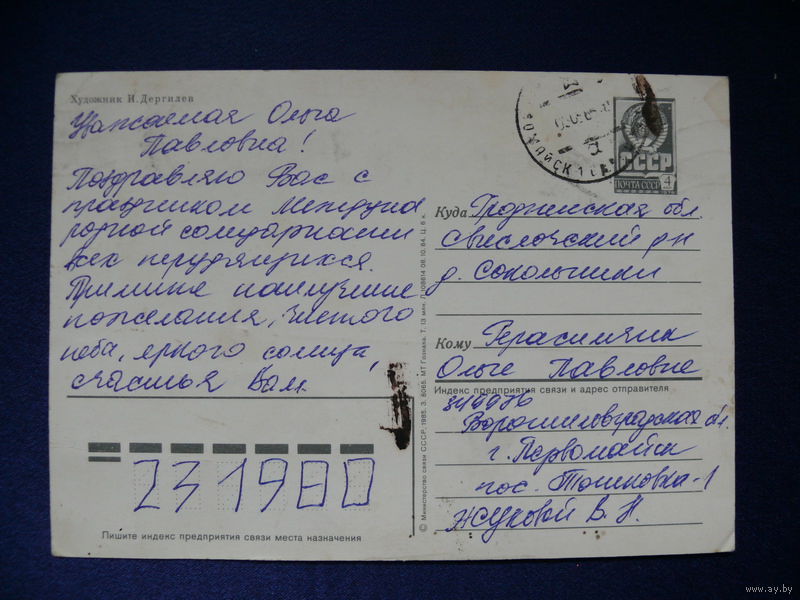 Художник И. Дергилев
Уважаемая Ольга
Павловна!
Поздравляю Вас с
праздником Междуна
родной солидарности
всех трудящихся.
Примите наилучшие
пожелания, чистого
неба, яркого солнца,
счастья Вам.
231900
Пишите индекс предприятия связи места назначения
© Министерство связи СССР, 1985. З. 8065. МТ Гознака. Т. 13 млн. 08.10.84. Ц. 6 к.
СССР
ПОЧТА СССР 4
Куда Гродненская обл.
Свислочский р-н
д. Сокольники
Кому Герасимчик
Ольге Павловне
Индекс предприятия связи и адрес отправителя
Ворошиловградская обл.
г. Первомайск
пос. Тошковка-1
Жуковой В. Н.
www.ay.by